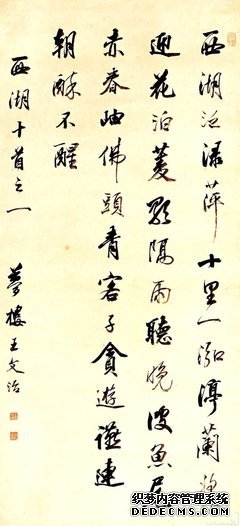 西湖泛渌萍十里一泓渟蘭槳
迎花泊菱歌隔雨聽晚波魚尾
赤春岫佛頭青客子貪遊讌連
朝醉不醒
西湖十首之一
夢樓王文治
织梦内容管理系统
DEDECMS.COM